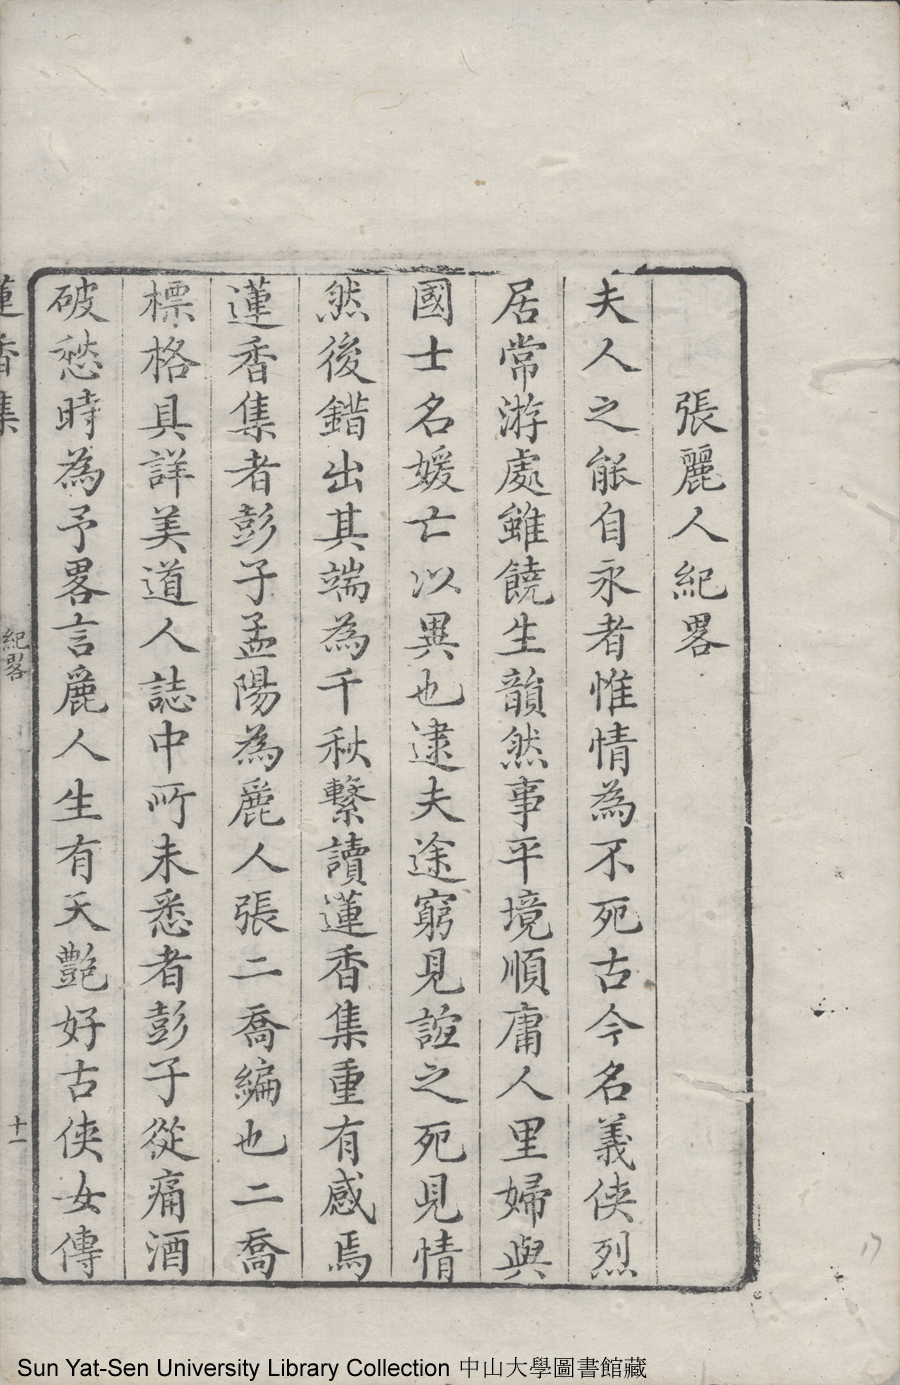 張麗人紀畧
夫人之能自永者惟情為不死古今名義俠烈
居常游處雖饒生韻然事平境順庸人里婦與
國士名媛亡以異也逮夫途窮見誼之死見情
然後錯出其端為千秋繫讀蓮香集重有感焉
蓮香集者彭子孟陽為麗人張二喬編也二喬
標格具詳美道人誌中所未悉者彭子從痛酒
破愁時為予畧言麗人生有天艷好古俠女傳
蓮香集
紀畧
十一
17
Sun Yat-Sen University Library Collection 中山大學圖書館藏